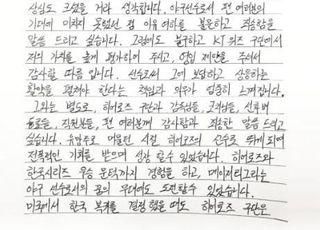 상심도 크셨을 거라 생각합니다. 야구선수로서 팬 여러분의
기대에 미치지 못했던 점 이유여하를 불문하고 죄송함을
말씀 드리고 싶습니다. 그럼에도 불구하고 KT위즈 구단에서
저의 가치를 높게 평가하여 주고, 영입 제안을 주셔서
감사할 따름 입니다. 선수로서 그에 보답하고 상응하는
활약을 펼쳐야 한다는 책임과 의무가 입증히 느껴집니다.
그와는 별도로, 히어로즈 구단과 감독님들, 코치님들, 선후배
동료들, 직원분들, 팬 여러분께 감사함과 죄송한 말씀 드리고
싶습니다. 유망주로 머물던 시절 히어로즈의 선수로 뛰게 되며
전폭적인 기회를 받으며 성장 할수 있었습니다. 히어로즈와
한국시리즈 우승 문턱까지 경험을 하고, 메이저리그라는
야구 선수로서의 꿈의 무대에도 도전할수 있었습니다.
미국에서 한국 복귀를 결정 했을 때도 히어로즈 구단은